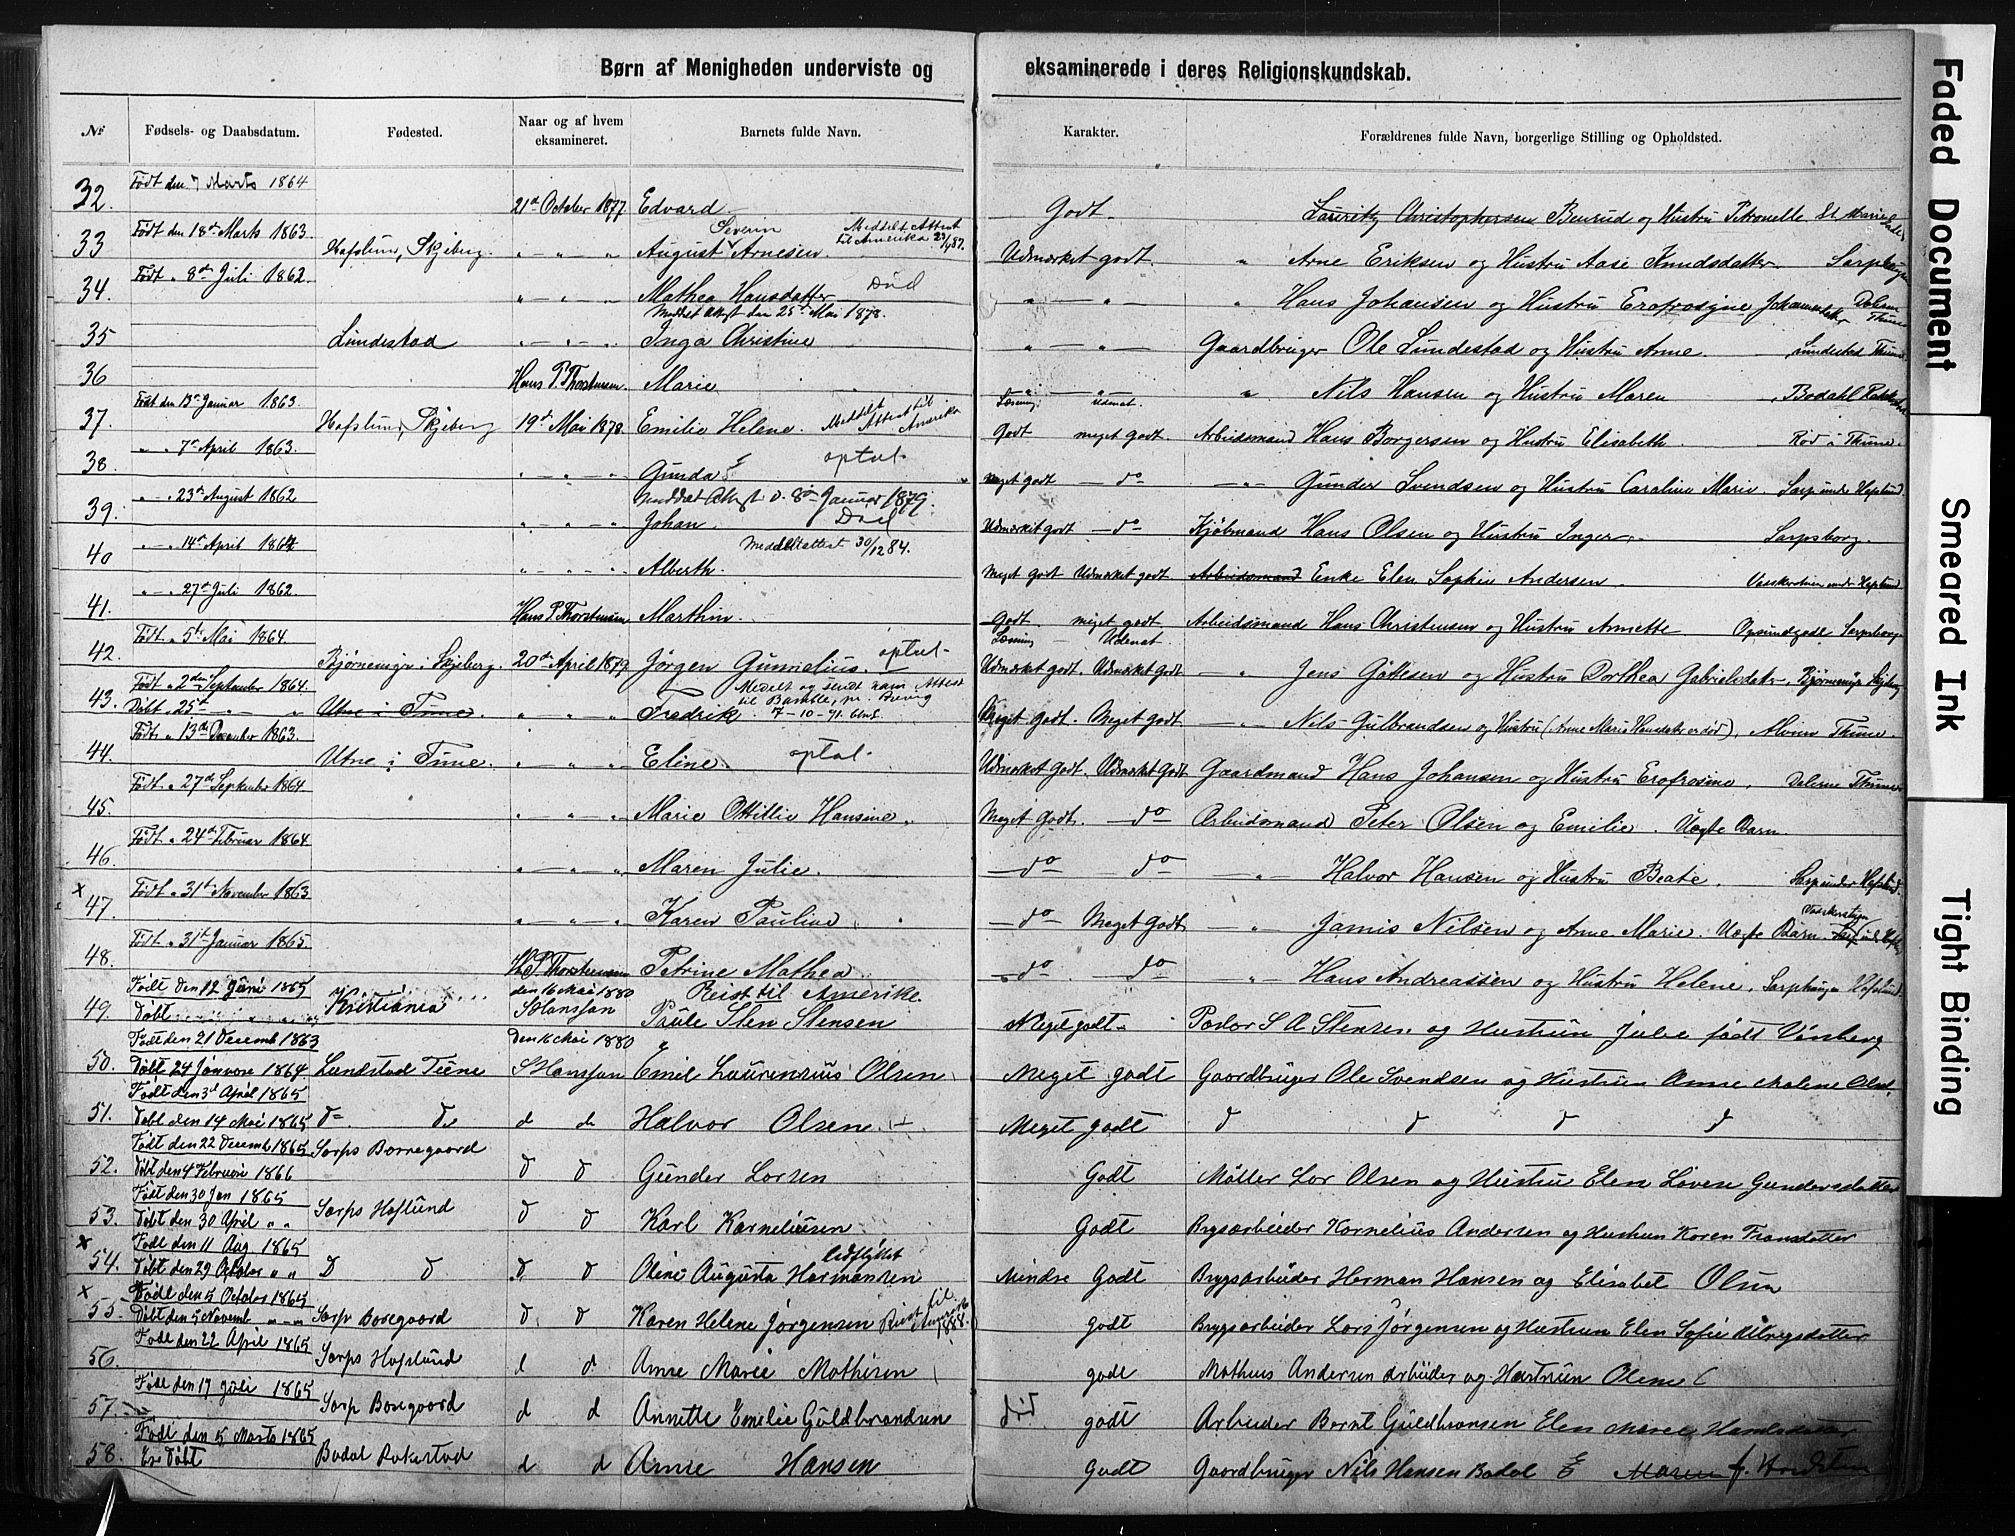 Børn af Menigheden underviste og eksaminerede i deres Religionskundskab.
Nr Fødsels- og Daabsdatum. Fødested. Naar og af hvem eksamineret. Barnets fulde Navn. Karakter. Forældrenes fulde Navn, borgerlige Stilling og Opholdsted.
Født den 7 Marts 1864
32. 21de October 1877. Edvard. Godt. Lauritz Christophersen Benrud og Hustru Petronelle
Født den 18de Marts 1863. Severin Meddelt Attest til Amerika
33 Hafslun, Skjeberg. " — " — " August Arnesen. Udmærket godt " Arne Eriksen og Hustru Aase Knudsdatter
Født " 8de Juli 1862. Død
34. " — " — " Mathea Hansdatter " — " — " Hans Johansen og Hustru Erofrosyne
Meddelt Attest den 25de Mai 1878.
35 Lundestad " — " — " Inga Christine " — " — Gaardbruger Ole Lundestad og Hustru Anne. Lundestad Thune
36 Hans P. Thorstensen. Marie " — " — " Nils Hansen og Hustru Maren Bodahl
Født den 13de Januar 1863. Meddelt Attest til Amerika Læsning Udenat.
37. Hafslun, Skjeberg 19de Mai 1878. Emilie Helene. Godt meget godt. Arbeidsmand Hans Borgersen og Hustru Elisabeth. Rød i Thune.
" " 7de April 1863. optat
38. " — " — " Gunda Meget godt — do — " — Gunder Svendsen og Hustru Caroline Marie. Sarp under Hafslund.
" — " 23de August 1862 Meddelt Attest d. 8de Januar 1879.
Død
39. " — " — " Johan. Udmærket godt — do — Kjøbmand Hans Olsen og Hustru Inger. Sarpsborg.
" — " 14de April 1864 Meddelt attest 30/12 84.
40 " — " — " Alberth. Meget godt Udmærket godt Arbeidsmand Enke Elen Sophie Andersen.
" — " 27de Juli 1862.
41. Hans P. Thorstensen Marthin. Godt meget godt Arbeidsmand Hans Christensen og Hustru Annette Opsundgade Sarpsborg
Født " 5te Mai 1864. Læsning Udenat
42. Bjørnemyr i Skjeberg. 20de April 1879 Jørgen Gunnelius. optat Udmærket godt. Udmærket Godt — " Jens Gøttesen og Hustru Dorthea Gabrielsdatter. Bjørnemyr Skjeberg
Født " 2den September 1864. Meddelt og sendt ham Attest
43. Døbt " 25de — " — " Utne i Tune. " — " — " Fredrik. til Bamble, pr. Brevig 7-10-91. Meget Godt. Meget Godt — " — Nils Gulbrandsen og Hustru (Anne Marie er død), Alvim Thune.
Født " 13de December 1863.
44. Utne i Tune. " — " — " Eline. optat Udmærket Godt. Udmærket Godt Gaardmand Hans Johansen og Hustru Erofrosine, Thune
Født " 27de September 1864
45. " — " — " Marie Ottillie Hansine. Meget Godt. — do — Arbeidsmand Peter Olsen og Emilie. Uægte Barn.
Født " 24de Februar 1864
46. " — " — " Maren Julie. — do — — do — — " — Halvor Hansen og Hustru Beate. Sarp under Hafslund
x Født " 31te November 1863
47. " — " — " Karen Pauline — do — Meget Godt — " Jamis Nilsen og Anne Marie. Uægte Barn
Født " 31te Januar 1865
48. H. P. Thorstensen Petrine Mathea — do — — do — " Hans Andreassen og Hustru Helene. Hafslund
Født den 12 Juni 1865 den 16 Mai 1880 Reist til Amerika.
49. Døbt Kristiania S Hansson Paule Sten Stensen Meget godt — Pastor S A Stensen og Hustrun Julie født Vinsberg
Født den 21 Decemb 1863 Den 16 Mai 1880
50. Døbt 24 Januar 1864 Lundestad Tune S Hansson Emil Laurensius Olsen Meget godt Gaardbruger Ole Svendsen og Hustrun Anne Malene
Født den 3d April 1865
51. Døbt den 14 Mai 1865 do do d do Halvor Olsen Meget godt d d d d
Født den 22 Decemb 1865
52. Døbt den 4 Februar 1866 Sarps Borregaard d d Gunder Larsen Godt Møller Lar Olsen og Hustru Elen Lovise Gundersdatter
Født den 30 Jan 1865
53. Døbt den 30 April " " Sarps Haflund d d Karl Karneliusen Godt Brygsarbeider Kornelius Andersen og Hustrun Karen Fransdatter
x Født den 11 Aug 1865 Udflyttet
54. Døbt den 29 Oktober " " D d d d Oline Augusta Harmansen Mindre Godt Brygsarbeider Herman Hansen og Elisabet Olsen
x Født den 5 October 1865
55. Døbt den 5 Novemb " — " Sarp Boregaard d d Karen Helene Jørgensen Reist til Amerika 1888. godt Brygsarbeider Lars Jørgensen og Hustrun Elen Sofie
Født den 22 April 1865
56. Sarps Hafslund d d Anne Marie Mathisen godt Mathius Andersen Arbeider og Hustrun Oline
Født den 17 Juli 1865
57. Sarp Boregaard d d Annette Emilie Guldbrandsen død. godt Arbeider Bernt Guldbransen Elen Marie
Født den 5 Marts 1865
58. Ei Døbt Bodal Rokestad d d Anne Hansen Godt Gaardbruger Nils Hansen Bodal & Maren f.
Faded Document
Smeared Ink
Tight Binding